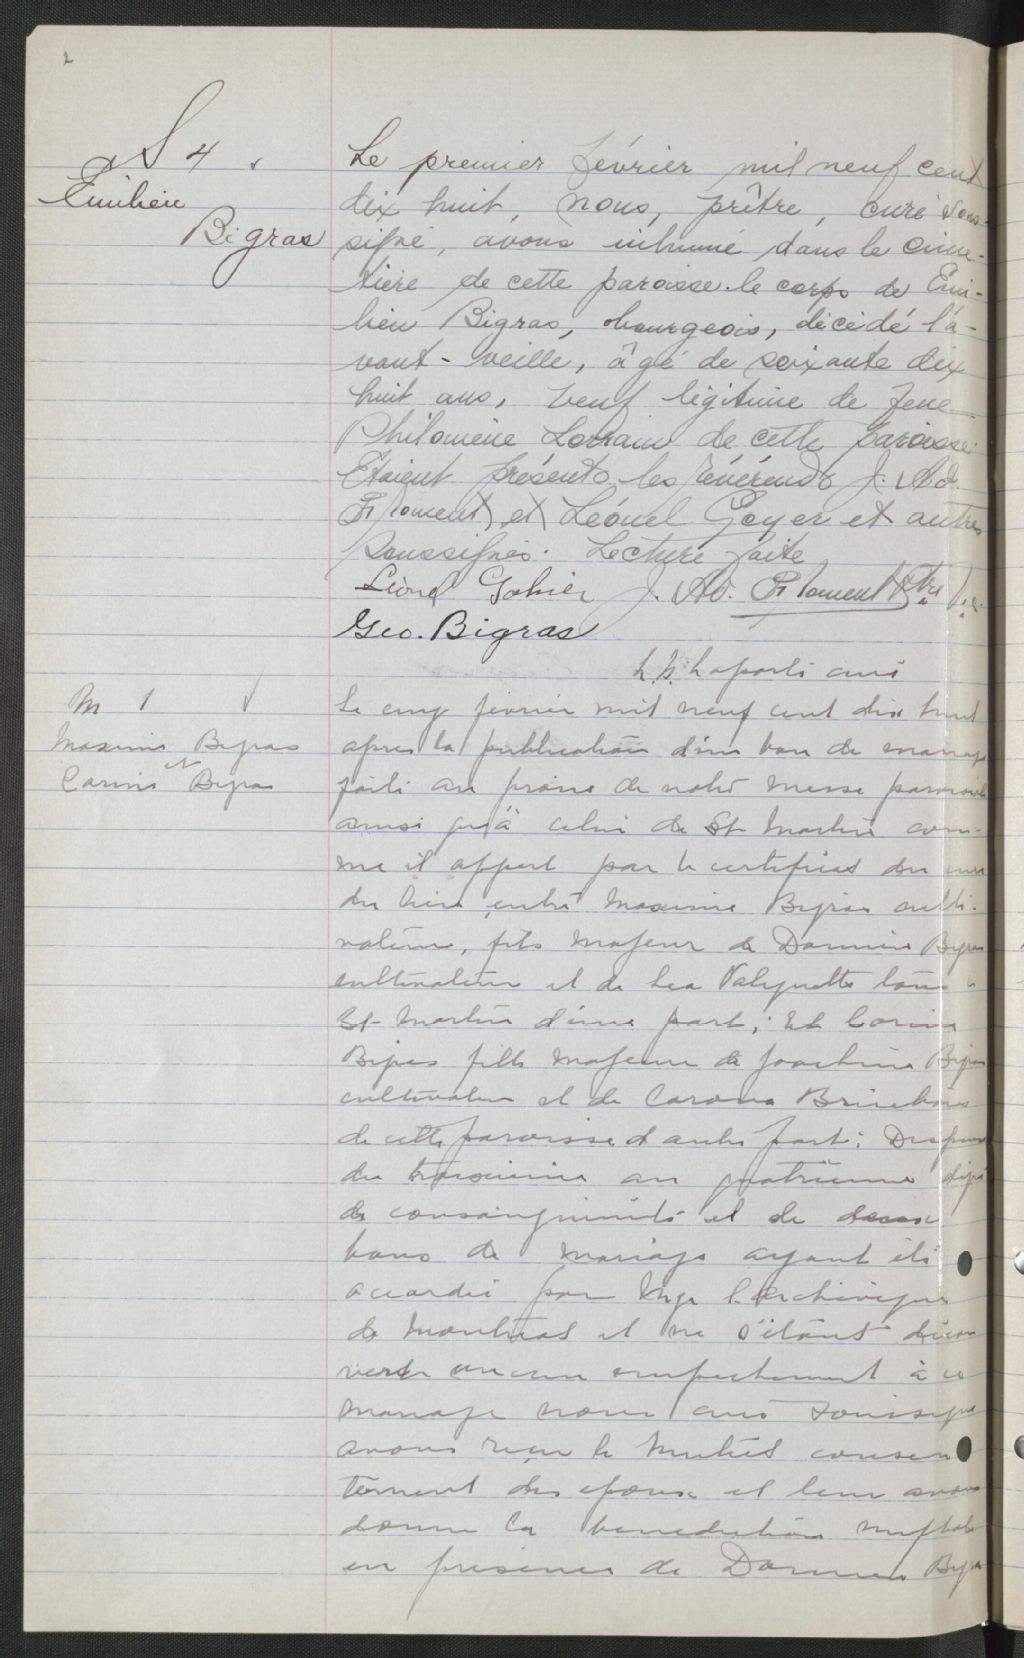 2
S 4
Émilien
Bigras
Le premier février mil neuf cent
dix huit, nous, prêtre, curé sous-
signé, avons inhumé dans le cime-
tière de cette paroisse le corps de Émi-
lien Bigras, bourgeois, décédé l'a-
vant-veille, âgé de soixante dix
huit ans, veuf légitime de feue
Philomène Lorrain de cette paroisse.
Étaient présents les révérends J. Ad.
Froment, et Léonel Goyer et autres
soussignés. Lecture faite
Léonel Gohier J. Ad. Froment Ptre
Geo. Bigras
Laporte curé
M 1
Maxime Bigras
&
Corine Bigras
Le cinq février mil neuf cent dix huit
apres la publication d'un ban de mariage
faite au prône de notre messe paroissiale
ainsi qu'à celui de St Martin com-
me il appert par le certificat du curé
du lieu entre Maxime Bigras culti-
vateur, fils majeur de Damien Bigras
cultivateur et de Lea Valiquette
St Martin d'une part; et Corine
Bigras fille majeure de Joachim Bigras
cultivateur et de Corona Brisebois
de cette paroisse d'autre part; Dispense
du troisième au quatrième degré
de consanguinité et de deux
bans de mariage ayant été
accordée par Mgr l'Archevêque
de Montréal et ne s'étant décou
vert aucun empêchement à ce
mariage nous curé soussigné
avons reçu le mutuel consen
tement des epoux et leur avons
donné la benediction nuptiale
en présence de Damien Bigras